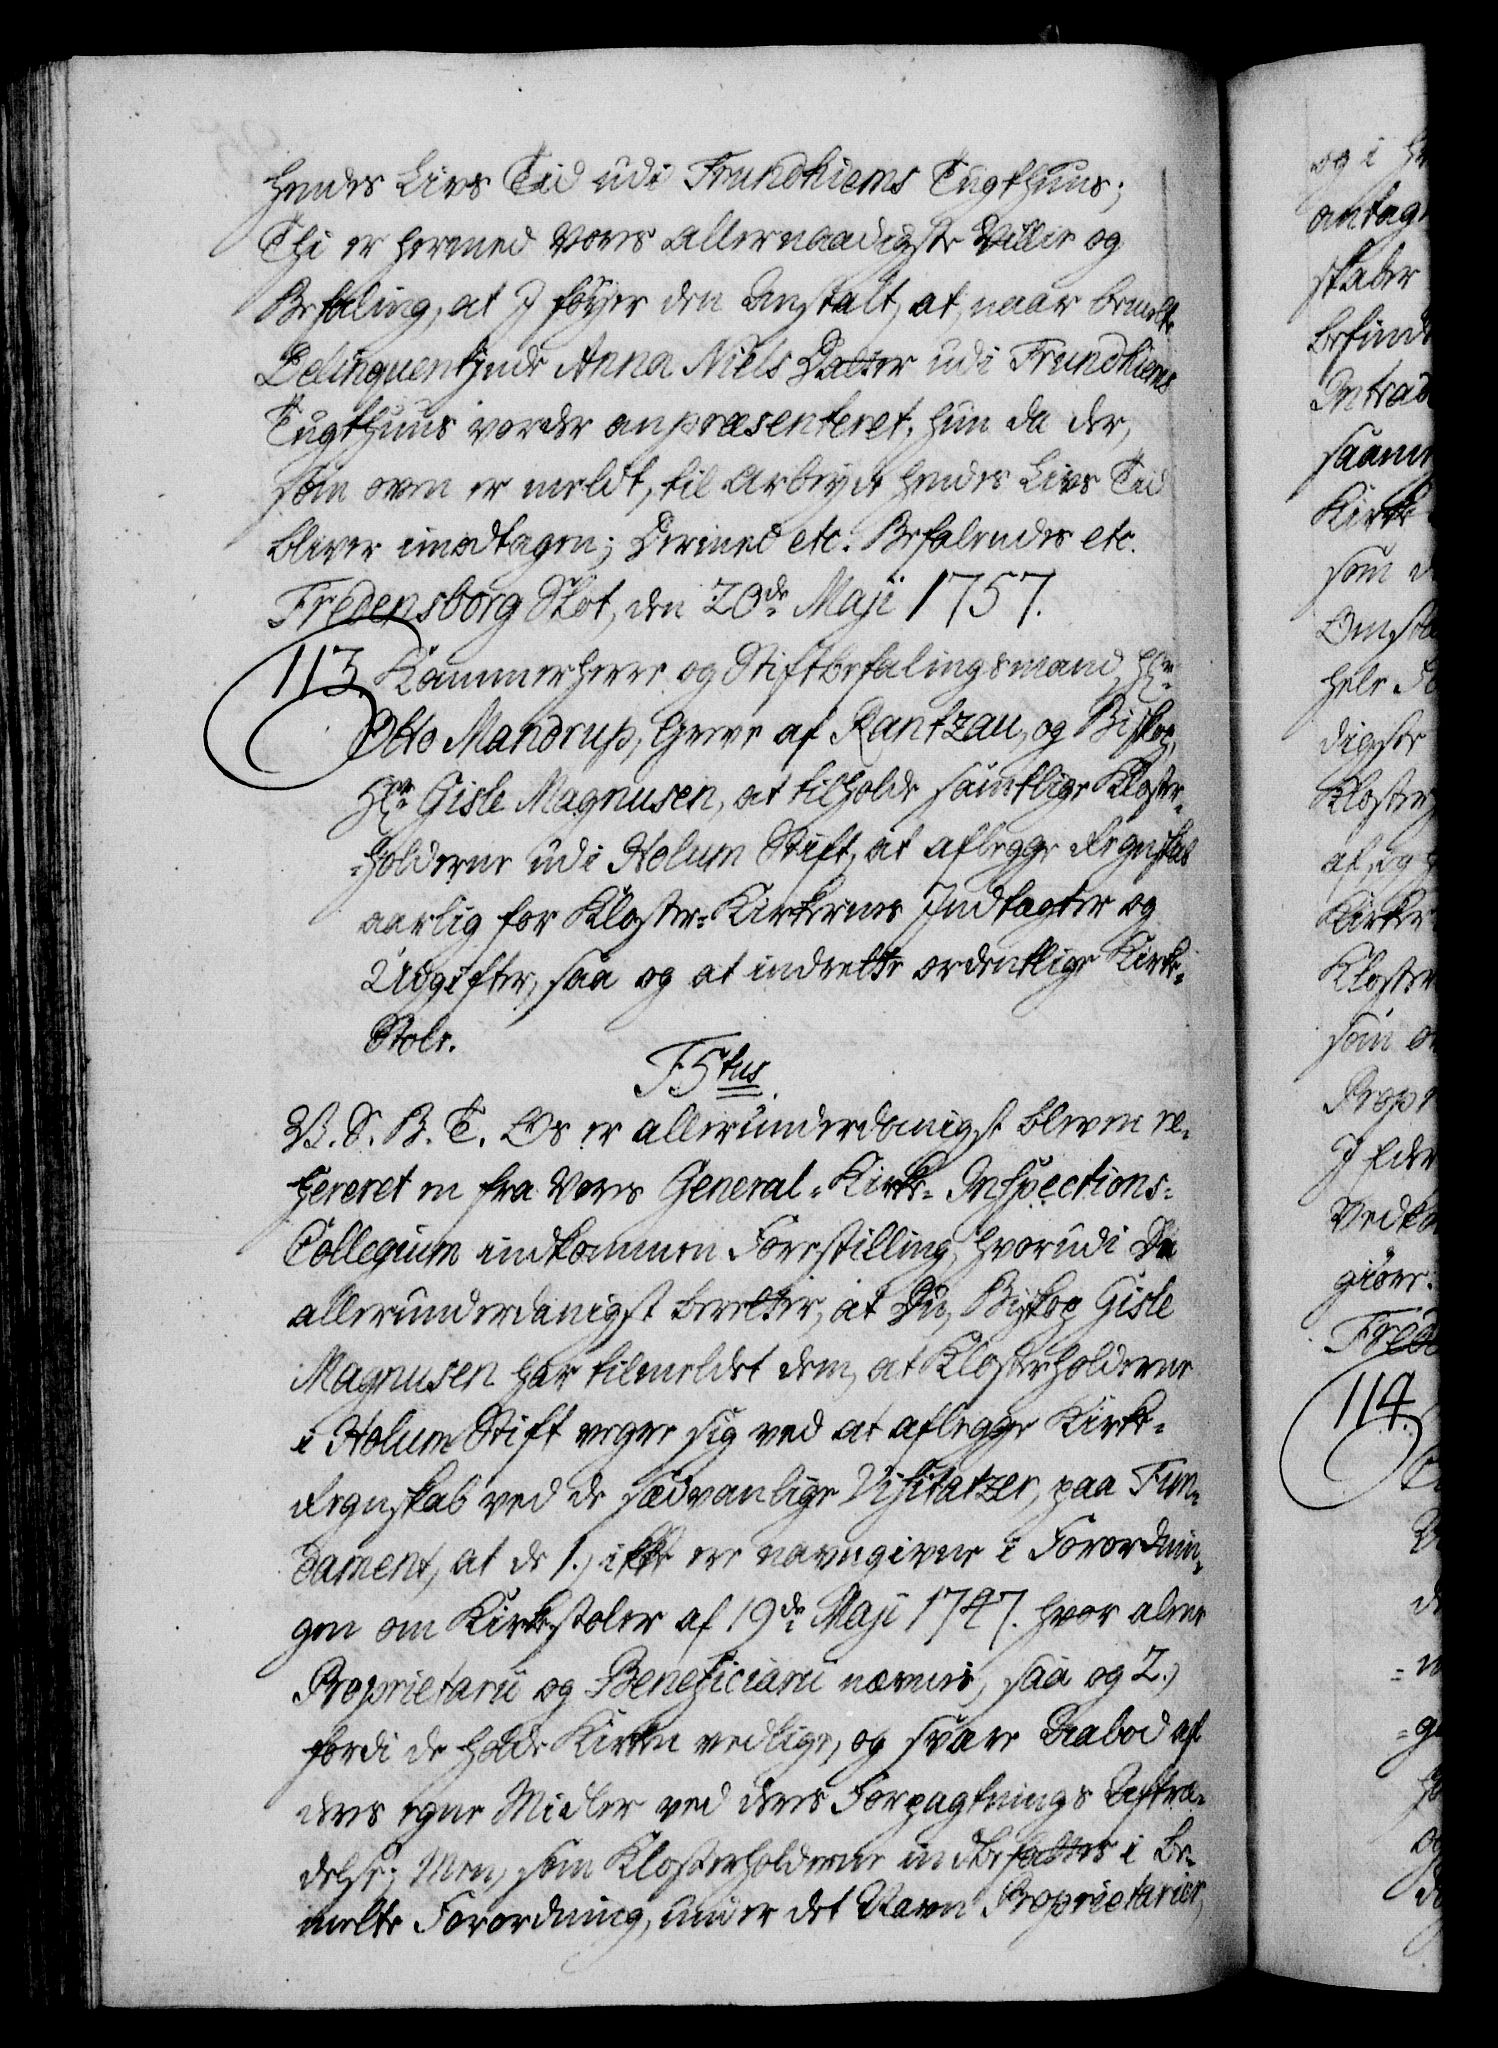 hendes Livs Tid udi Trundhiems Tugthuus;
Thi er hermed Vores allernaadigste Villie og
Befaling, at I føyer den Anstalt, at, naar bemelte
Delinquentinde Anna Niels Datter udi Trundhiems
Tugthuus vorder anpræsenteret, hun da der,
som oven er meldt, til Arbeyde hendes Livs Tid
bliver imodtagen; Dermed etc. Befalendes etc.
Fredensborg Slot, den 20de Maji 1757.
113. Kammerherre og Stiftbefalingsmand, Hr.
Otto Mandrup, Greve af Rantzau, og Biskop,
Hr. Gisle Magnusen, at tilholde samtlige Kloster-
-holderne udi Holum Stift, at aflegge Regnskab
aarlig for Kloster-Kirkernes Indtægter og
Udgifter, saa og at indrette ordentlige Kirke-
Stole.
F5tus.
V. S. B. T. Os er allerunderdanigst bleven re-
fereret en fra Vores General-Kirke-Inspections-
Collegium indkommen Forestilling, hvorudi De
allerunderdanigst beretter, at Du, Biskop Gisle
Magnusen har tilmeldet dem, at Klosterholderne
i Holum Stift vegre sig ved at aflegge Kirke-
Regnskab ved de sædvanlige Visitatzer, paa Fun-
dament, at de 1.) ikke ere navngivne i Forordnin-
gen om Kirkestoler af 19de Maji 1747. hvor alene
Proprietarii og Beneficiarii nævnes, saa og 2.)
fordi de holde Kirken vedlige, og svare Aabod af
deres egne Midler ved deres Forpagtnings Aftræ-
delse; Men, som Klosterholderne indbefattes i be-
melte Forordning, under det Navn Proprietarier,
og i
antag
skaber
befind
Intrad
saam
Kirke
som
Omst
hele
digste
Kloster
af sig
Kirker
Kloster
som
Prop
I Eder
Vedk
giøre.
Fred
114.